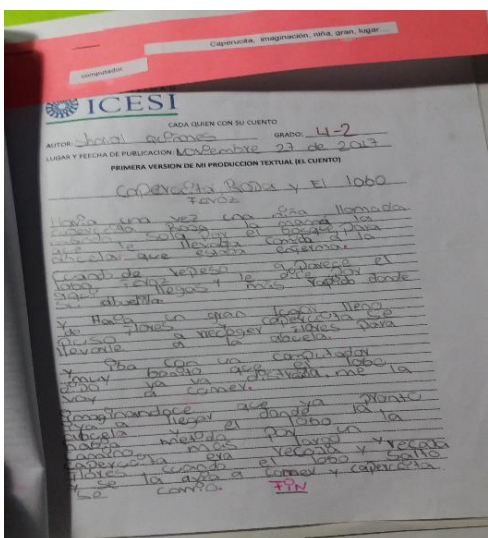 Caperucita, imaginación, niña, gran, lugar...
computador.
ICESI
CADA QUIEN CON SU CUENTO
AUTOR: GRADO: 4-2
LUGAR Y FECHA DE PUBLICACIÓN: Noviembre 27 de 2017
PRIMERA VERSIÓN DE MI PRODUCCIÓN TEXTUAL (EL CUENTO)
Caperucita Roja y El lobo
Feroz
Había una vez una niña llamada
caperucita Roja la mamá la
mando sola por el bosque para
que le llevara comida a la
abuelar que estaba enferma.
cuand de repeso aparece el
lobo Feroz y le dice por
aqui llegas mas rapido donde
su abuelita.
y Había un gran lleno
de Flores y caperucita se
puso a recoger Flores para
llevarle a la abuela.
y iba con un computador
muy bonito que el lobo
dijo ya va me la
voy a comer.
Imaginandoce que ya pronto
iva a llegar donde la
abuela y el lobo la
había metida por un
camino mas largo y
caperucita era recoja y recoja
Flores cuando el lobo salto
y se la a comer y caperucita
se comio. FIN